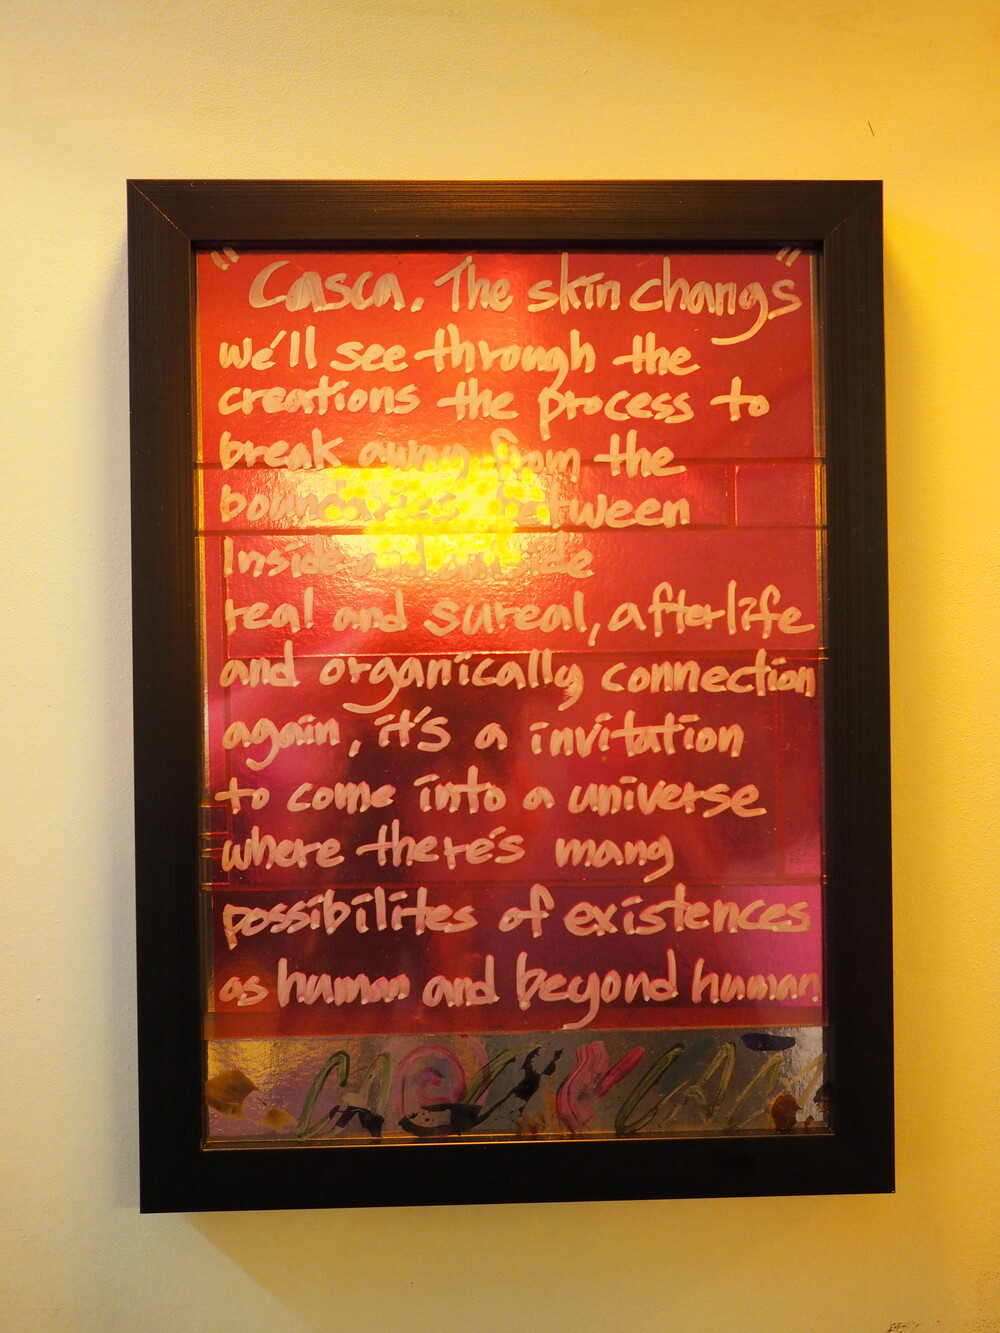 "Casca. The skin changs"
we'll see through the
creations the process to
break away from the
boundaries between
Inside and outside
real and sureal, afterlife
and organically connection
again, it's a invitation
to come into a universe
where there's many
possibilites of existences
as human and beyond human